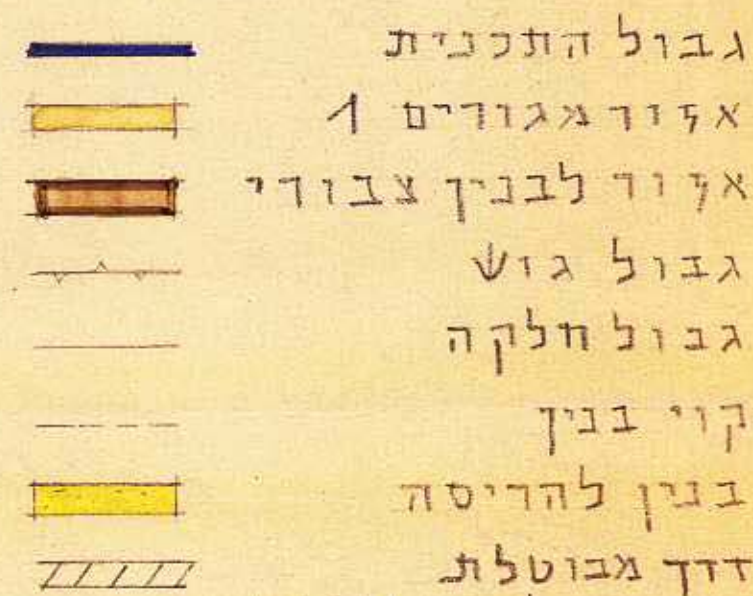 גבול התכנית
אזור מגורים 1
אזור לבנין צבורי
גבול גוש
גבול חלקה
קוי בנין
בנין להריסה
דרך מבוטלת